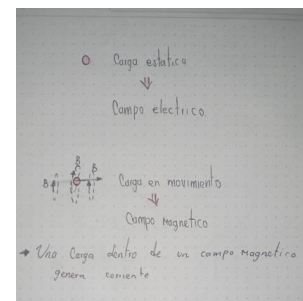 Carga estatica
⇓
Campo electrico.
B B B
Carga en movimiento
⇓
Campo Magnetico
→ Una Carga dentro de un campo Magnetico
genera corriente